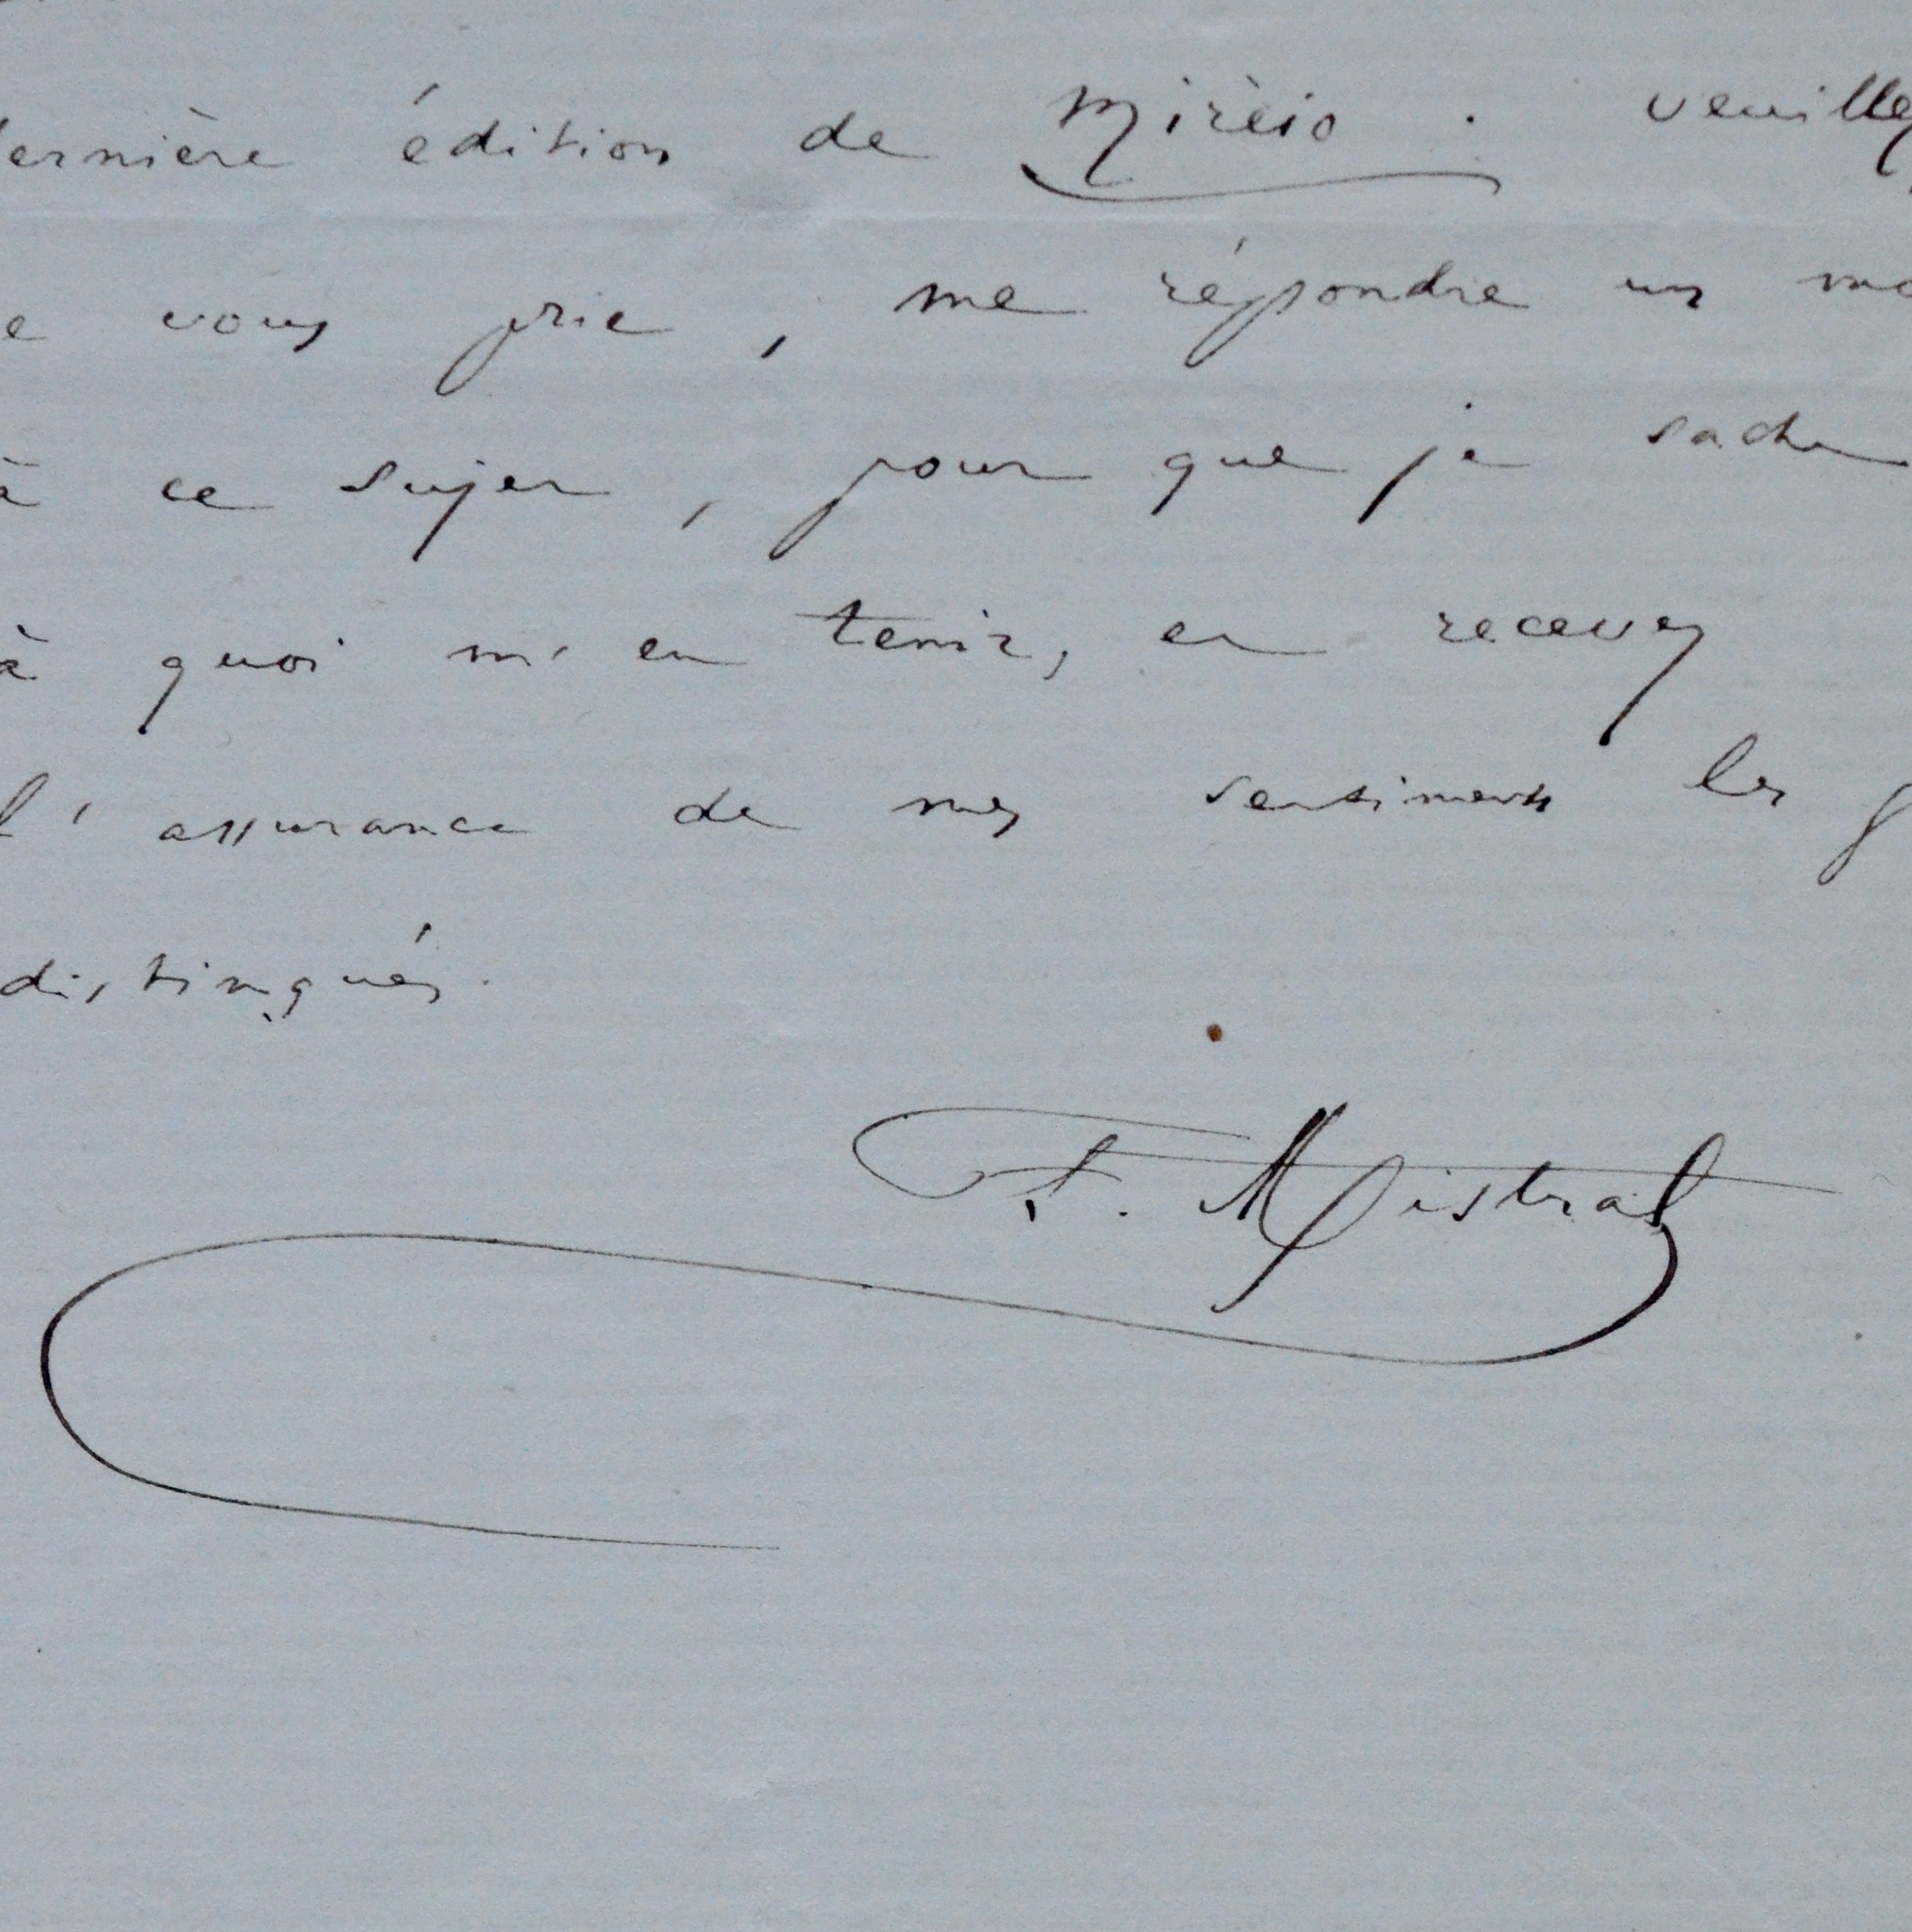 dernière édition de Mirèio. veuillez
e vous prie, me répondre un mo
à ce sujet, pour que je sache
à quoi m'en tenir, et recevez
l'assurance de mes sentiments les p
distingués.
F. Mistral